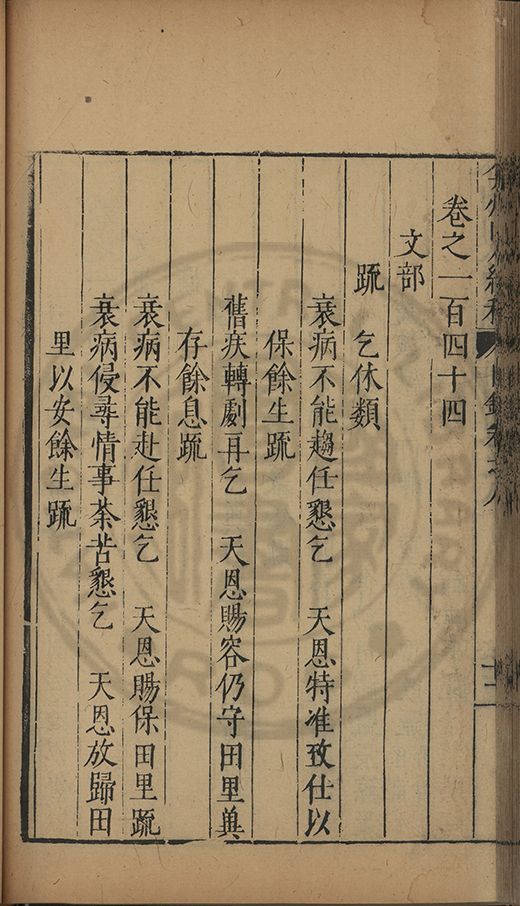 卷之一百四十四
文部
疏 乞休類
衰病不能趨任懇乞 天恩特准致仕以
保餘生疏
舊疾轉劇再乞 天恩賜容仍守田里兾
存餘息疏
衰病不能赴任懇乞 天恩賜保田里疏
衰病侵尋情事荼苦懇乞 天恩放歸田
里以安餘生疏